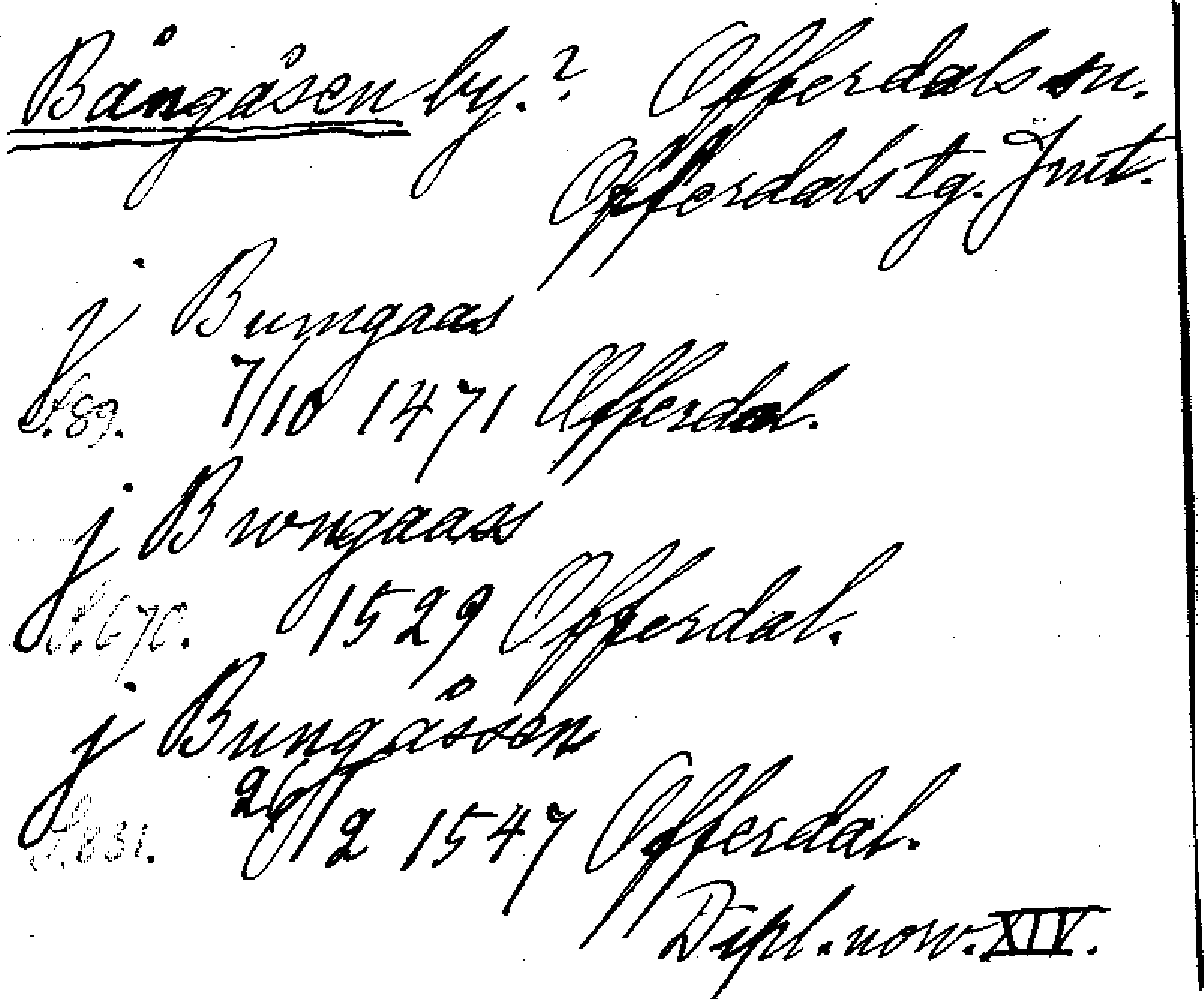 Bångåsen by.? Offerdals sn.
Offerdals tg. Jmt.
j Bumgaas
S.89. 7/10 1471 Offerdal.
j Bwngaass
S.670. 1529 Offerdal.
j Bungåssen
S.831. 26/12 1547 Offerdal.
Dipl. norv. XIV.